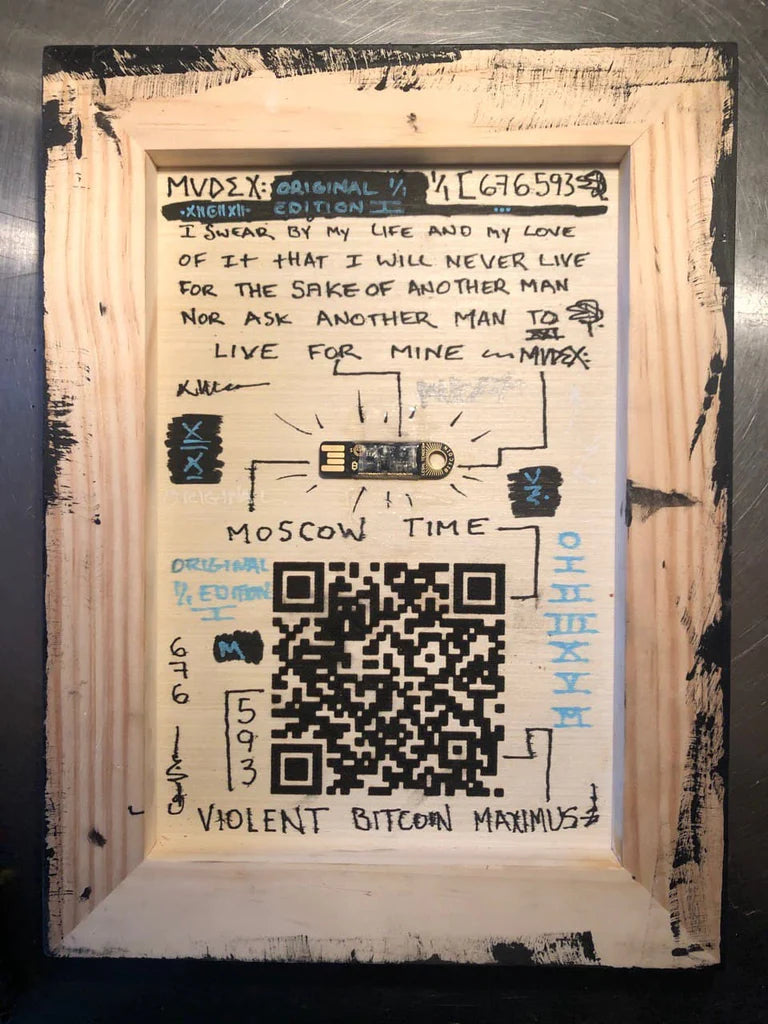 MVDEX: ORIGINAL 1/1 1/1 [676.593
EDITION I
I SWEAR BY MY LIFE AND MY LOVE
OF IT THAT I WILL NEVER LIVE
FOR THE SAKE OF ANOTHER MAN
NOR ASK ANOTHER MAN TO
LIVE FOR MINE MVDEX:
MOSCOW TIME
ORIGINAL
1/1 EDITION
I
M
676
593
VIOLENT BITCOIN MAXIMUS